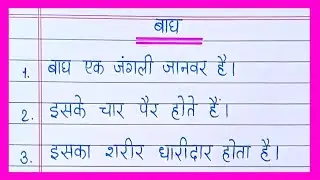 बाघ
1. बाघ एक जंगली जानवर है।
2. इसके चार पैर होते हैं।
3. इसका शरीर धारीदार होता है।